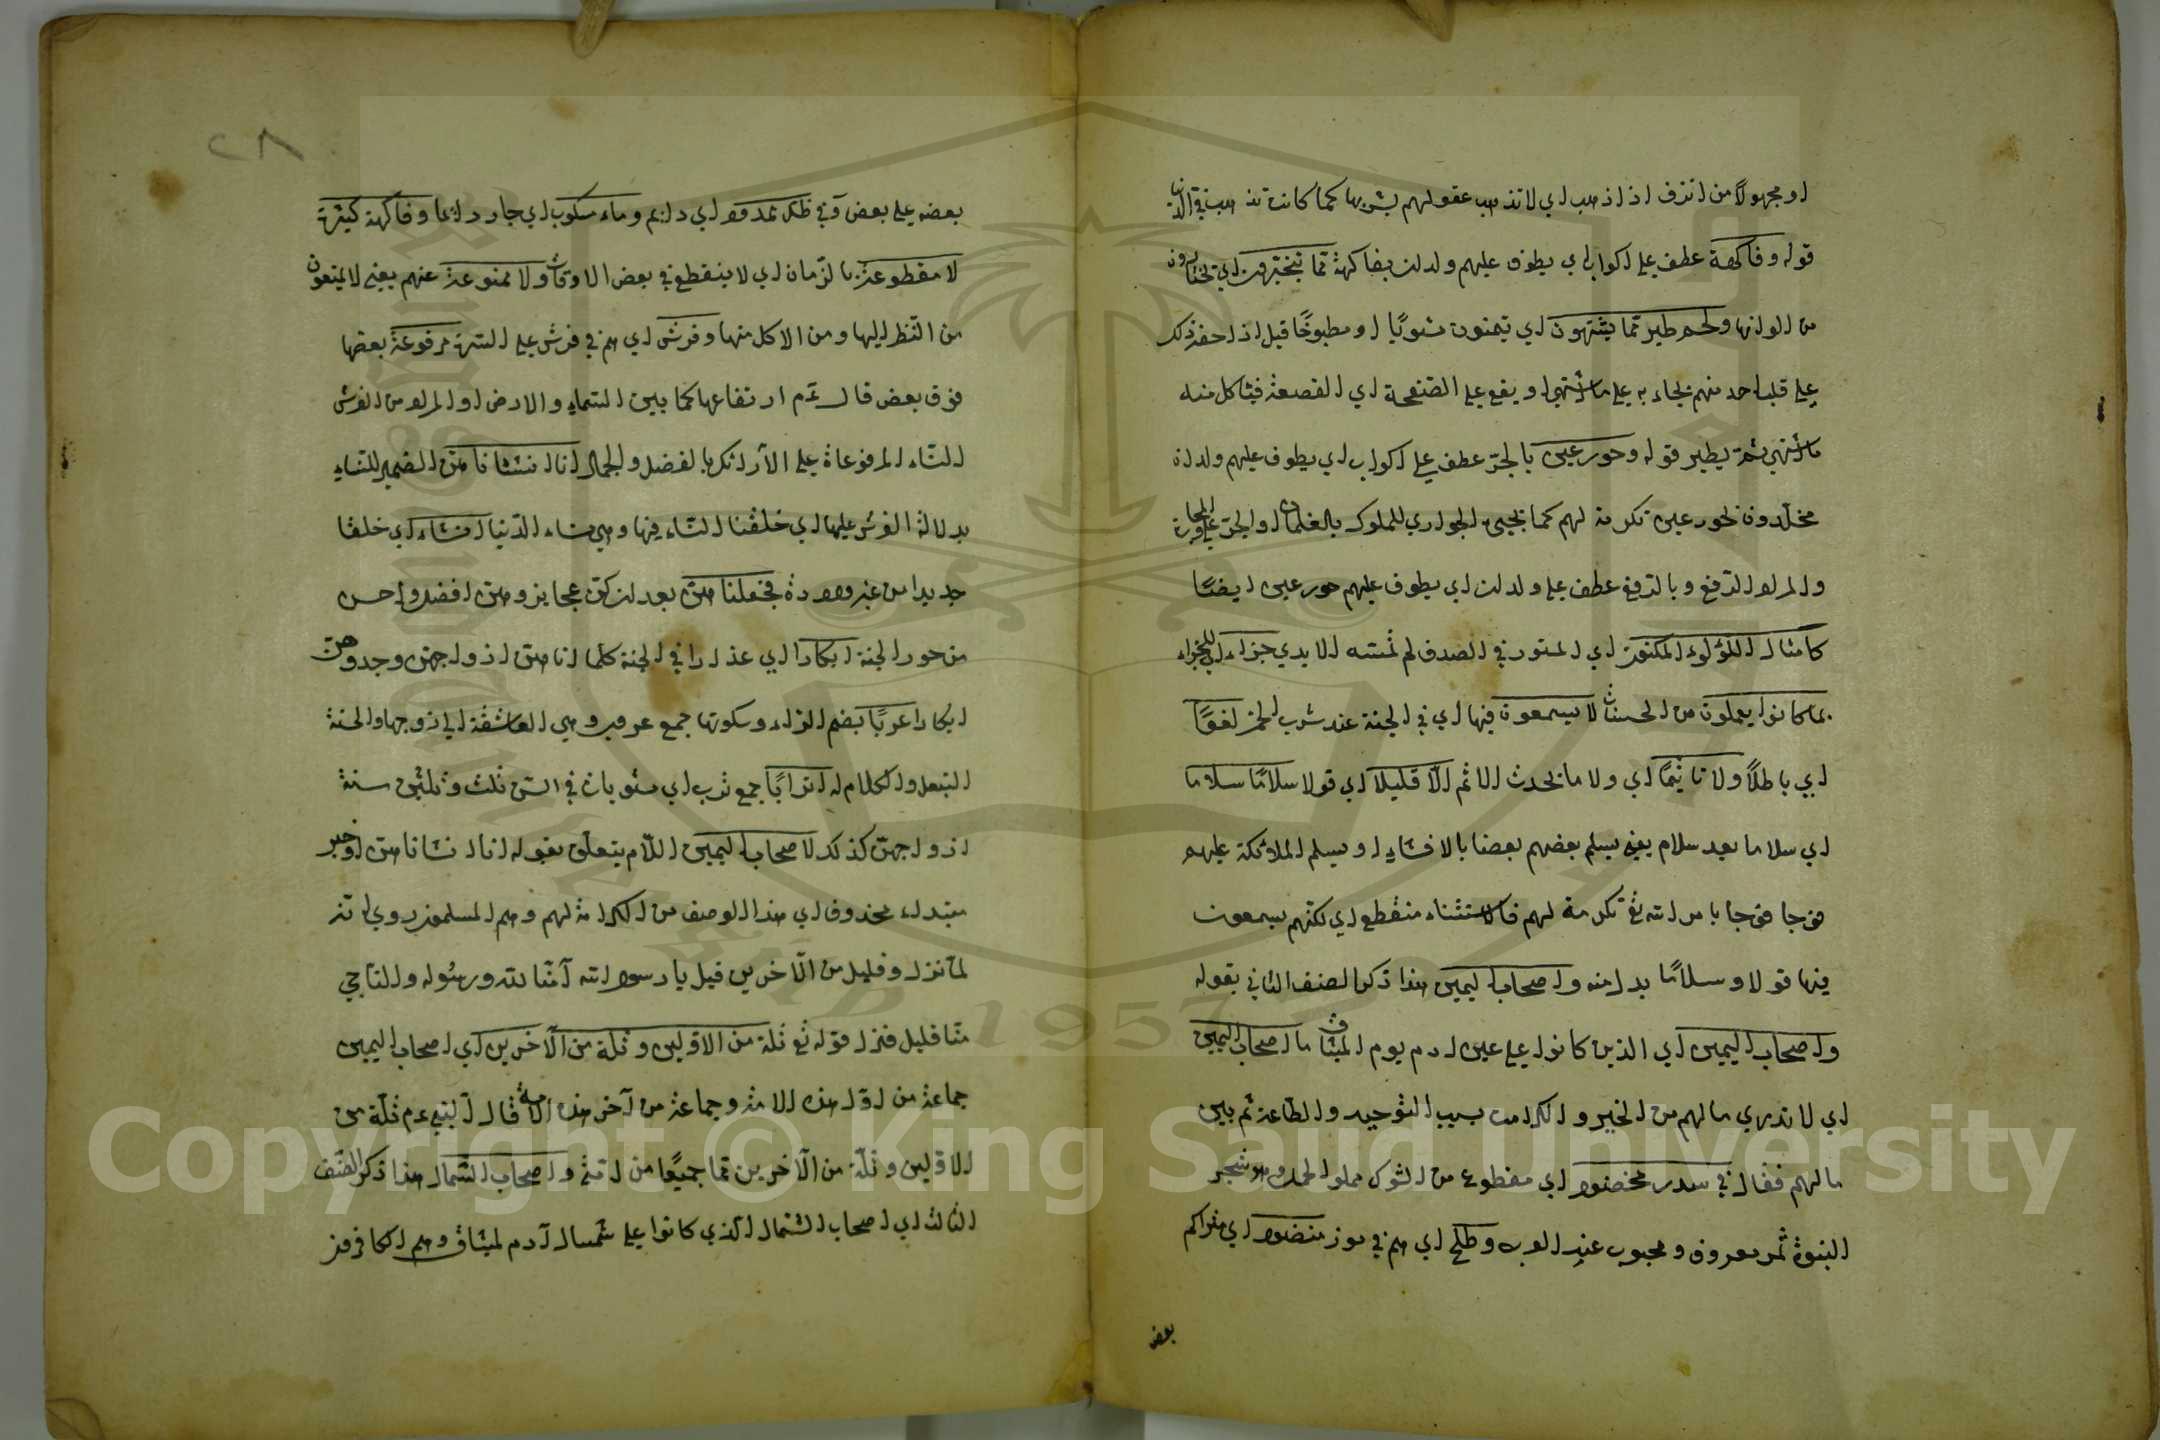 او مجهولا من انزف اذا ذهب اي لا تذهب عقولهم بشربها كما كانت تذهب في الدنيا
قوله وفاكهة عطف على اكواب اي يطوف عليهم ولدان بفاكهة مما يتخيرون اي يختارون
من الوانها ولحم طير مما يشتهون اي يتمنون مشويا او مطبوخا قيل اذا خطر ذلك
على قلب احد منهم يجاء به على ما اشتهى او يقع على الصفحة اي القصعة فيأكل منه
ما اشتهى ثمة يطير قوله وحور عين بالجر عطف على اكواب اي يطوف عليهم ولدان
مخلدون بحور عين تكرمة لهم كما يجيئ الجواري للملوك بالغلمان او الجر على المجاورة
والمراد الرفع وبالرفع عطف على ولدان اي يطوف عليهم حور عين ايضا
كامثال اللؤلوء المكنون اي المستور في الصدف لم تمسه الايدي جزاء اي للجزاء
بما كانوا يعملون من الحسنات لا يسمعون فيها اي في الجنة عند شرب الخمر لغوا
اي باطلا ولا تاثيما اي ولا ما يحدث الاثم الا قليلا اي قولا سلاما سلاما
اي سلاما بعد سلام يعني يسلم بعضهم بعضا بالافشاء او يسلم الملائكة عليهم
فوجا فوجا بامر الله تع تكرمة لهم فالاستثناء منقطع اي لكنهم يسمعون
فيها قولا وسلاما بدل منه واصحاب اليمين هذا ذكر الصنف الثاني بقوله
واصحاب اليمين اي الذين كانوا على عين ادم يوم الميثاق ما اصحاب اليمين
اي لا تدري ما لهم من الخير والكرامت بسبب التوحيد والطاعة ثم بين
ما لهم فقال في سدر مخضود اي مقطوع من الشوك مملو الحمل وهو شجر
النبوة ثمر معروف ومحبوب عند العرب وطلح اي هم في موز منضود اي متراكم
بعض
٢٨
بعضه على بعض وفي ظل ممدود اي دائم وماء مسكوب اي جار دائما وفاكهة كثيرة
لا مقطوعة بالزمان اي لا ينقطع في بعض الاوقات ولا ممنوعة عنهم يعني لا يمنعون
من النظر اليها ومن الاكل منها وفرش اي هم في فرش على السرر مرفوعة بعضها
فوق بعض قال عم ارتفاعها كما بين السماء والارض او المراد من الفرش
النساء المرفوعاة على الآرائك بالفضل والجمال انا انشأناهن الضمير للنساء
بدلالة الفرش عليها اي خلقنا النساء فيها وهي نساء الدنيا انشاء اي خلقا
جديدا من غير ولادة فجعلناهن بعد ان كن عجايز وهن افضل واحسن
من حور الجنة ابكارا اي عذارا في الجنة كلما اتاهن ازواجهن وجدوهن
ابكارا عربا بضم الراء وسكونها جمع عروب وهي العاشقة الى زوجها والحسنة
التبعل والكلام له اترابا جمع ترب اي مستويات في السن ثلث وثلثين سنة
ازواجهن كذلك لاصحاب اليمين اللام يتعلق بقوله انا انشاناهن او خبر
مبتداء محذوف اي هذا الوصف من الكرامة لهم وهم المسلمون روي انه
لما نزل وقليل من الآخرين قيل يا رسول الله آمنا بالله ورسوله والناجي
منا قليل فنزل قوله تع ثلة من الاولين وثلة من الآخرين اي اصحاب اليمين
جماعة من اول هذه الامة وجماعة من آخر هذه الامة قال النبي عم ثلة من
الاولين وثلة من الآخرين هما جميعا من امتي واصحاب الشمال هذا ذكر الصنف
الثالث اي اصحاب الشمال الذي كانوا على شمال آدم لميثاق وهم الكافرون